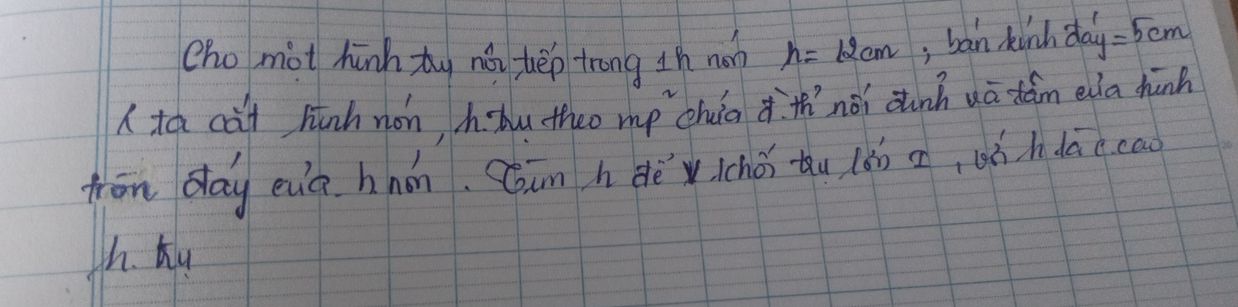 Cho một hình trụ nội tiếp trong 1 h nón h = 12cm , bán kính đáy = 5cm
( ta cắt hình nón , h.trụ theo mp chứa đ.th nối đỉnh và tâm của hình
tròn đáy của h nón . Tìm h để V khối trụ lớn I , với h là c.cao
h. trụ